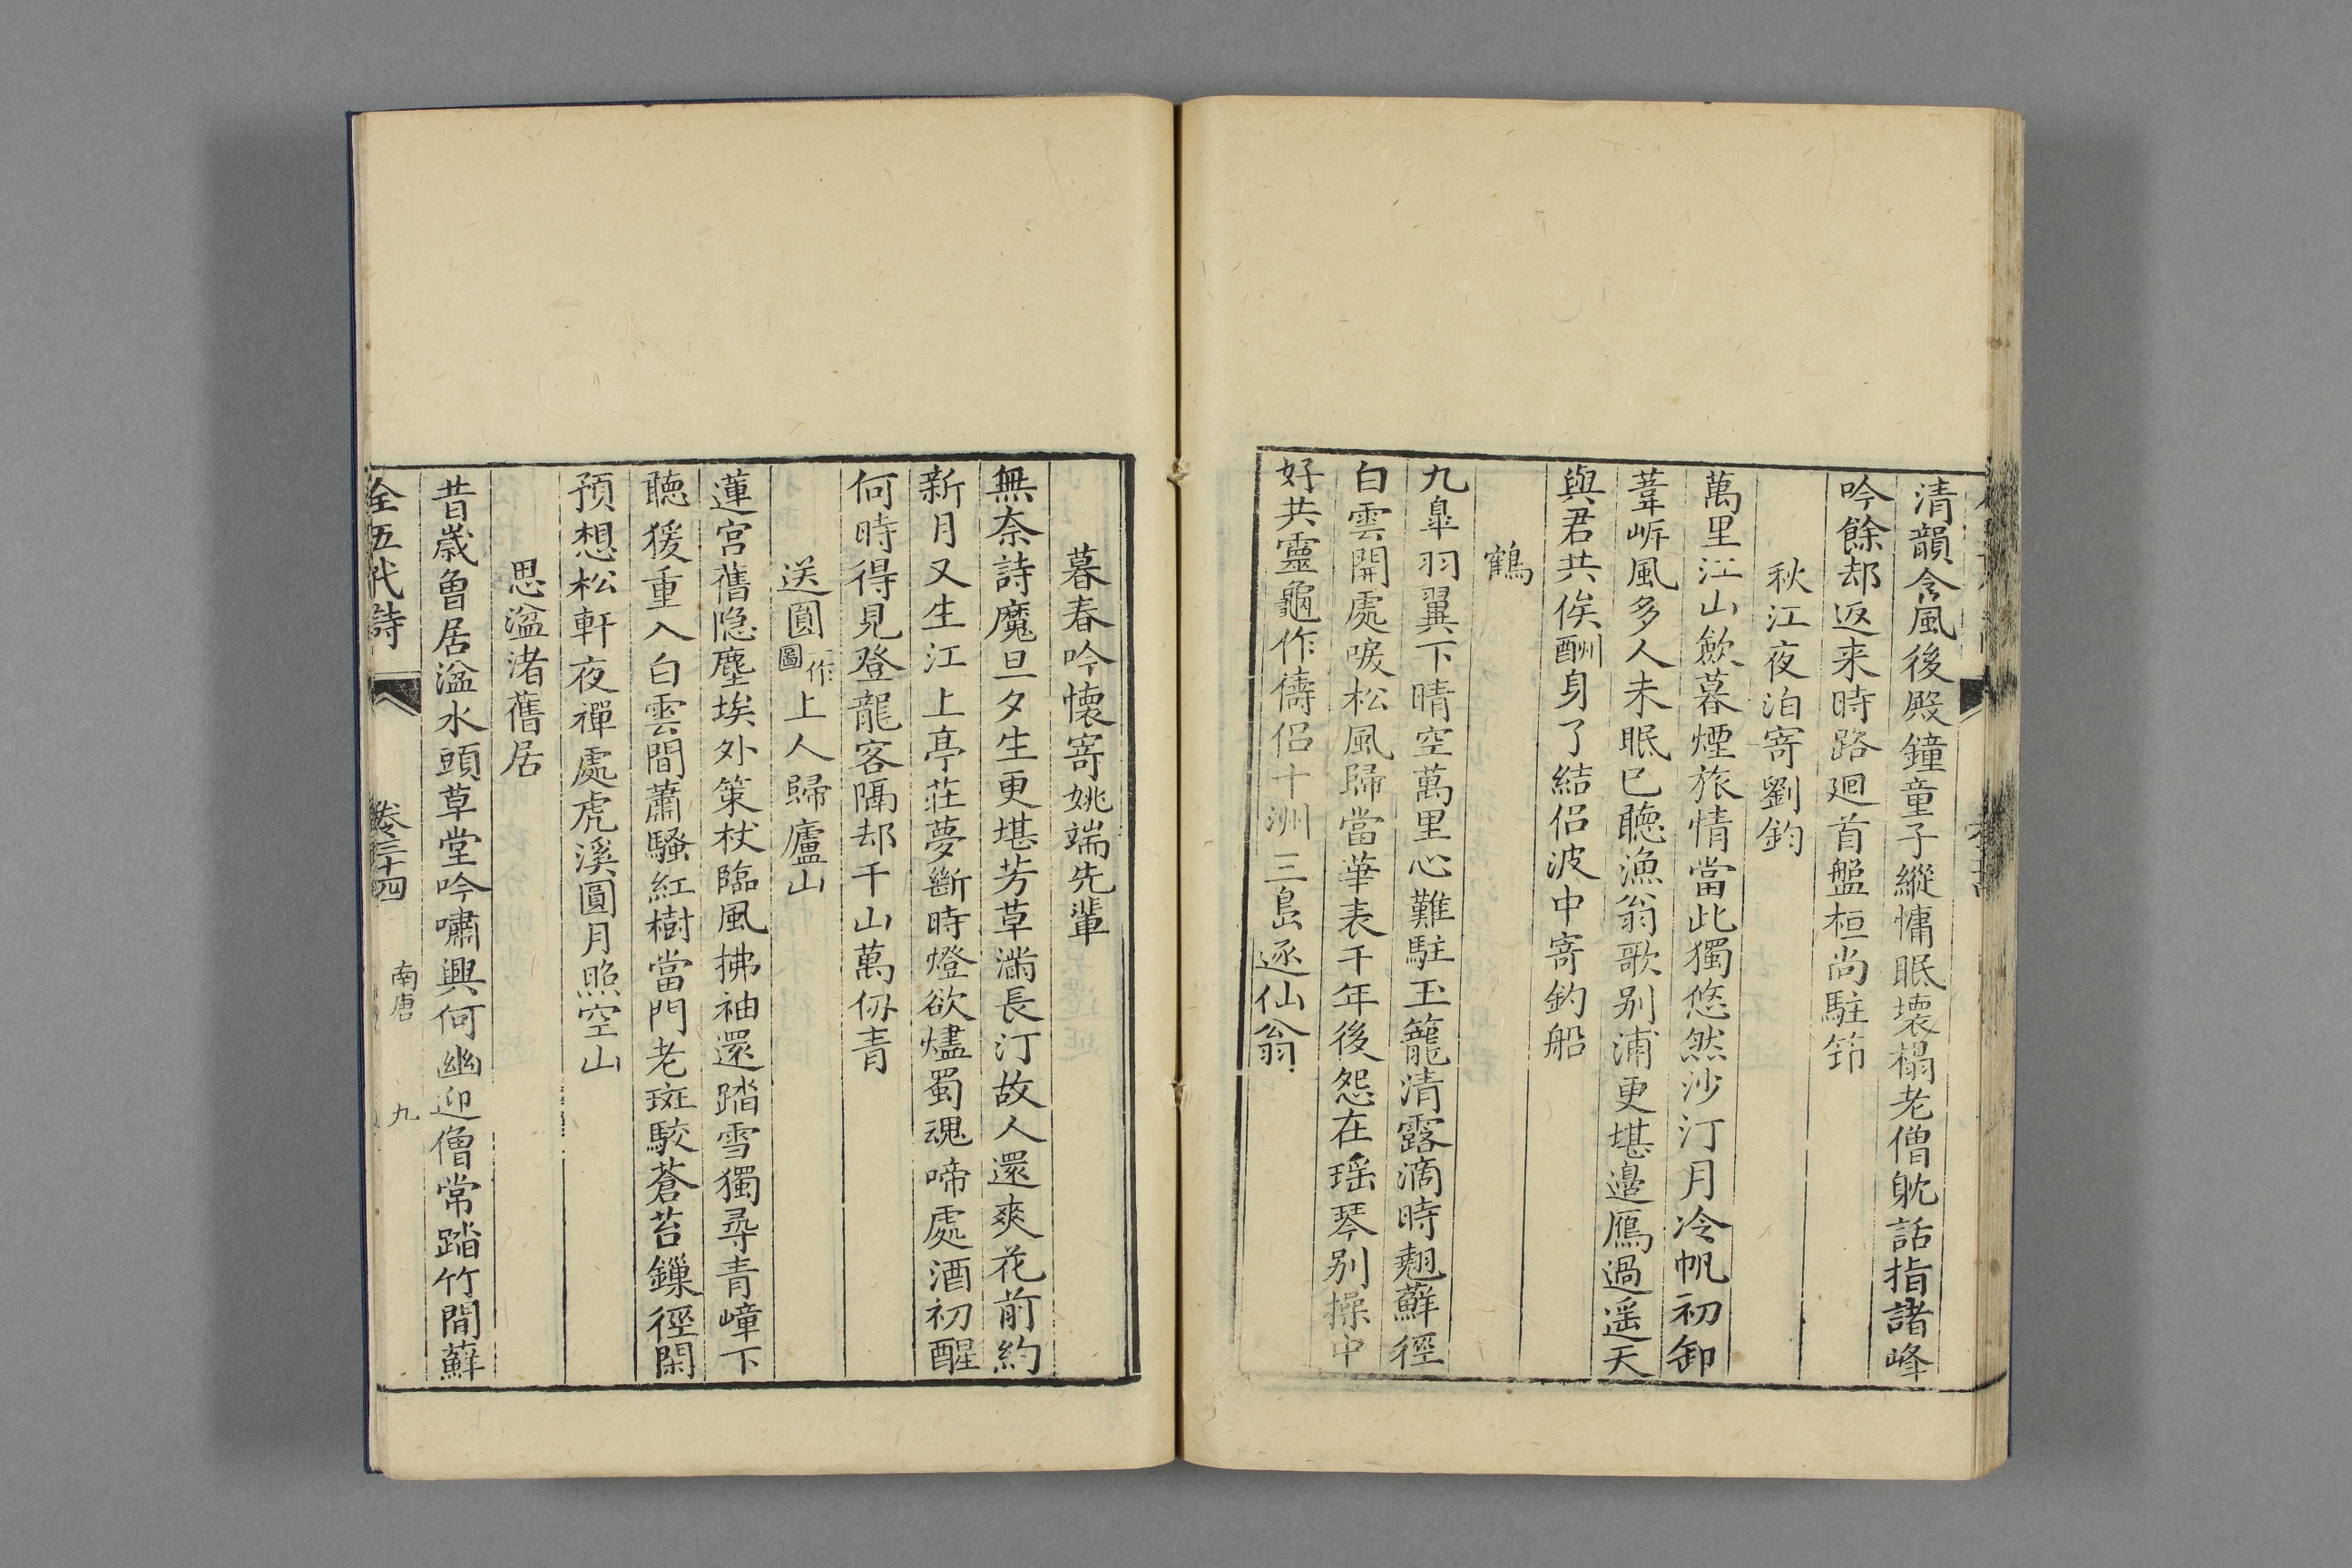 清韻含風後殿鐘童子縱慵眠壞榻老僧躭話指諸峰
吟餘却返来時路廻首盤桓尚駐筇
秋江夜泊寄劉鈞
萬里江山歛暮煙旅情當此獨悠然沙汀月冷帆初卸
葦岍風多人未眠已聽漁翁歌别浦更堪邉鴈過遥天
與君共俟酬身了結侣波中寄釣船
鶴
九臯羽翼下晴空萬里心難駐玉籠清露滴時翹蘚徑
白雲開處唳松風歸當華表千年後怨在瑶琴别操中
好共靈龜作儔侣十洲三島逐仙翁
暮春吟懷寄姚端先輩
無奈詩魔旦夕生更堪芳草滿長汀故人還爽花前約
新月又生江上亭莊夢斷時燈欲燼蜀魂啼處酒初醒
何時得見登龍客隔却千山萬仞青
送圓一作圖上人歸廬山
蓮宮舊隐塵埃外策杖臨風拂袖還踏雪獨尋青嶂下
聴猨重入白雲間蕭騷紅樹當門老斑駮蒼苔鏁徑閑
預想松軒夜禪處虎溪圓月照空山
思湓渚舊居
昔歲曾居湓水頭草堂吟嘯興何幽迎僧常踏竹間蘚
全五代詩 卷三十四 南唐 九